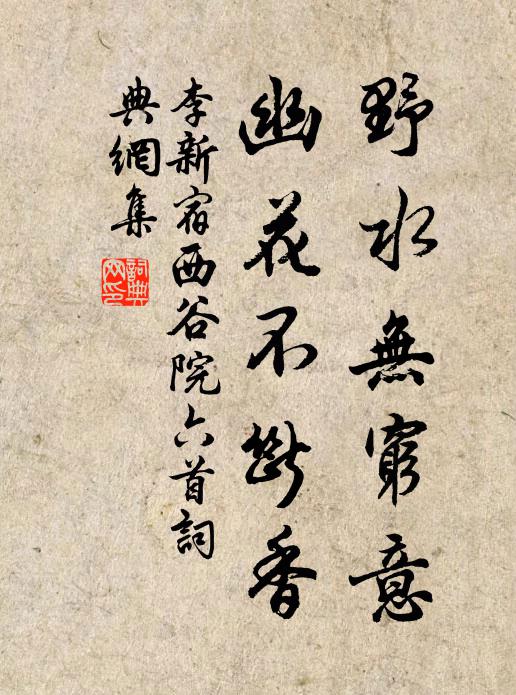 野水無窮意
幽花不斷香
李新宿西谷院六首詞
典網集
詞典
网印